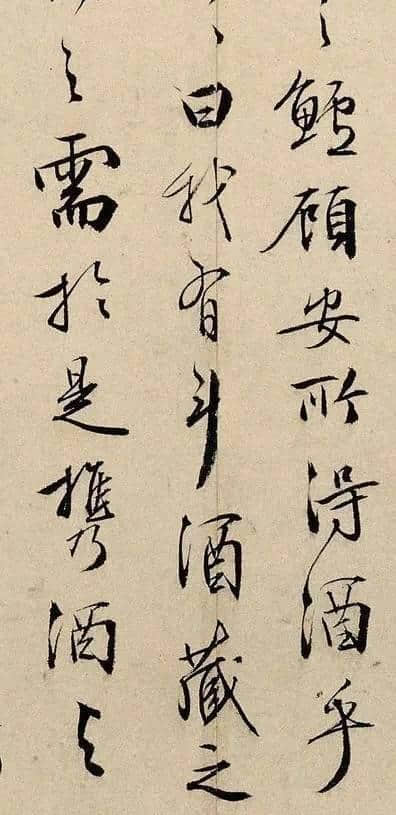 之鱸顧安所得酒乎
曰我有斗酒藏之
之需於是攜酒与